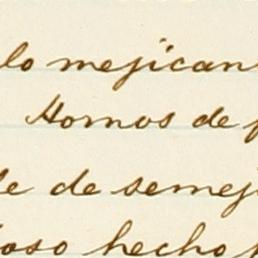 lo mejican
Homos de
de de semej
oso hecho